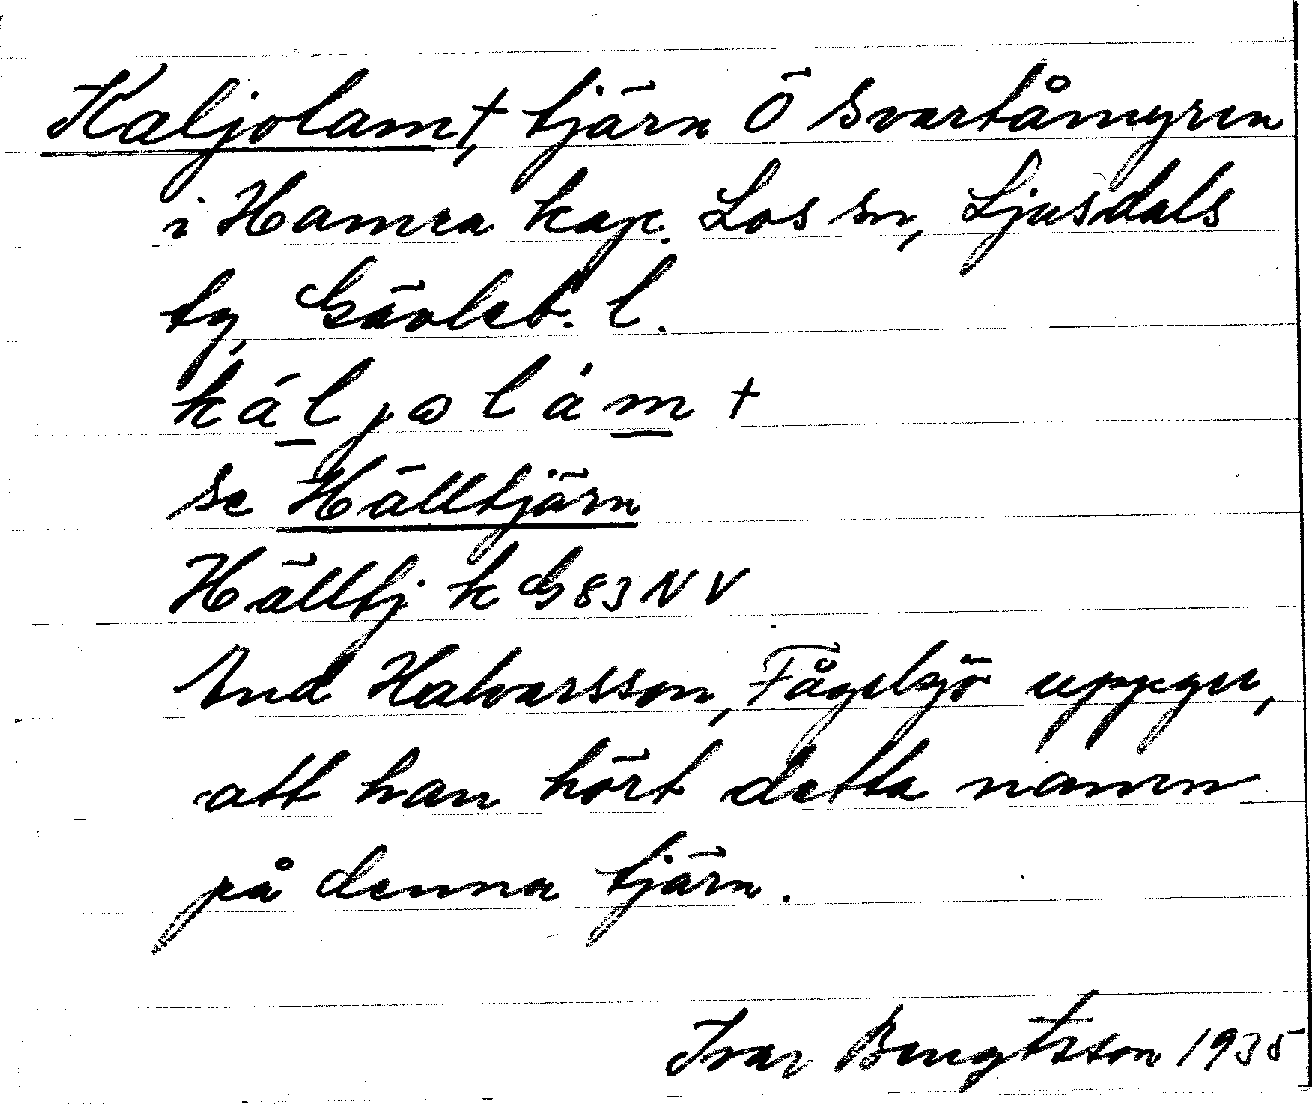 Kaljolam†, tjärn Ö Svartåmyren
i Hamra kap. Los sn, Ljusdals
tg Gävleb. l.
kál jo làm †
se Hälltjärn
Hälltj k G 83 NV
And Halvarsson, Fågelsjö uppger,
att han hört detta namn
på denna tjärn.
Ivar Bengtsson 1935